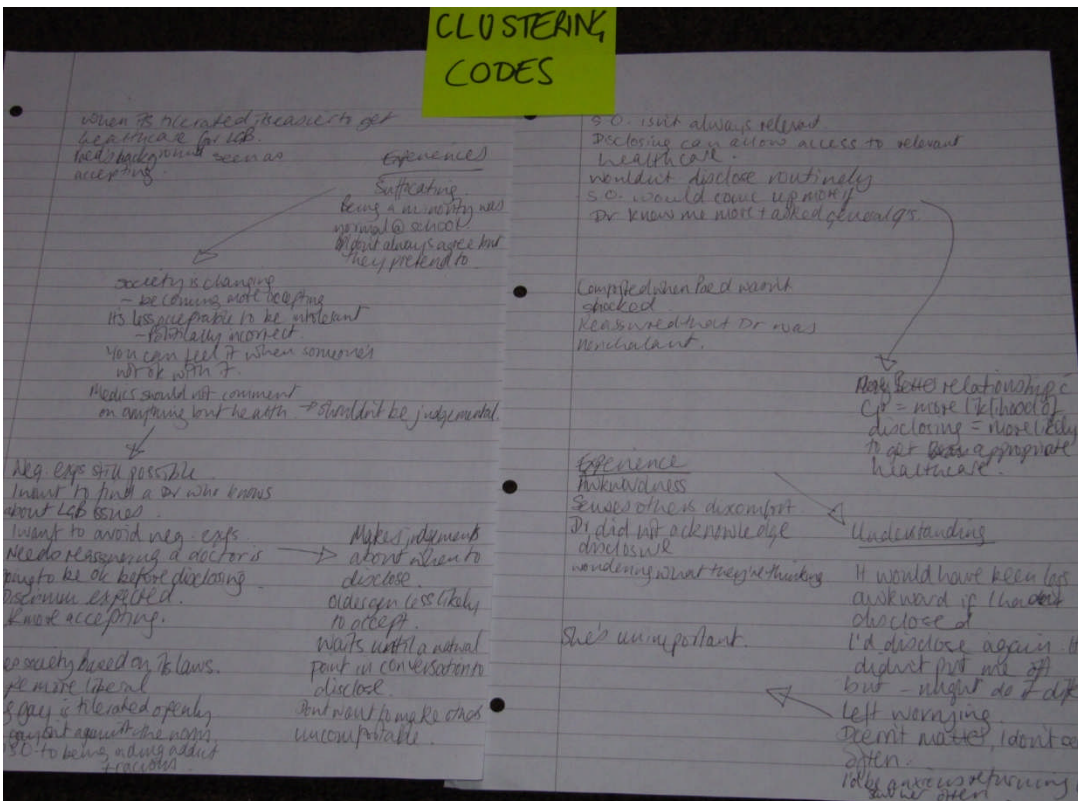 CLUSTERING
CODES
When it's tolerated, its easier to get
healthcare for LGB.
background seen as
accepting.
Experiences
Suffocating.
Being a minority was
normal @ school
don't always agree but
they pretend to.
Society is changing
- becoming more accepting
It's less acceptable to be intolerant
- Politically incorrect.
You can feel it when someone's
not ok with it.
Medics should not comment
on anything but health → shouldn't be judgemental.
Neg. exps still possible
I want to find a Dr who knows
about LGB issues.
I want to avoid neg. exps
Needs reassuring a doctor is
going to be ok before disclosing.
Discrimin expected.
more accepting.
society based on its laws.
more liberal
gay is tolerated openly
against the norm,
S.O. to being a drug addict
Makes judgements
about when to
disclose.
Older gen less likely
to accept.
Waits until a natural
point in conversation to
disclose.
Dont want to make others
uncomfortable.
S.O. isn't always relevant.
Disclosing can allow access to relevant
healthcare.
Wouldn't disclose routinely
S.O. would come up more if
Dr know me more + asked general q's.
Comforted when Paed wasn't
shocked
Reassured that Dr was
nonchalant.
Better relationship c
GP = more likelihood of
disclosing = more likely
to get appropriate
healthcare.
Experience
Awkwardness
Senses others discomfort
Dr did not acknowledge
disclosure
wondering what they're thinking
She's unimportant.
Understanding
It would have been less
awkward if I hadn't
disclosed
I'd disclose again. It
didn't put me off
but - might do it
Left worrying.
Doesn't matter, I don't
often.
I'd be anxious returning
often